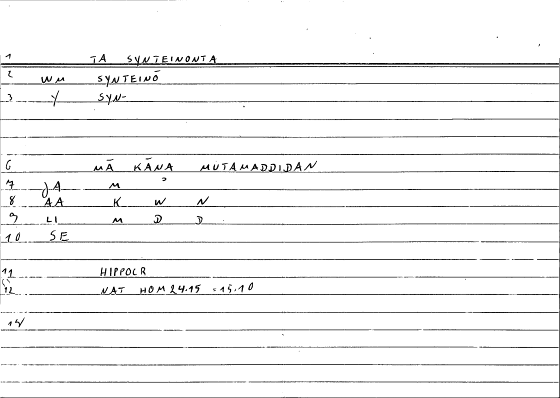 1 TA SYNTEINONTA
2 WM SYNTEINŌ
3 Y SYN-
6 MĀ KĀNA MUTAMADDIDAN
7 JA M ʾ
8 AA K W N
9 LI M D D
10 SE
11 HIPPOCR
12 NAT HOM 24.15 = 15,10
14